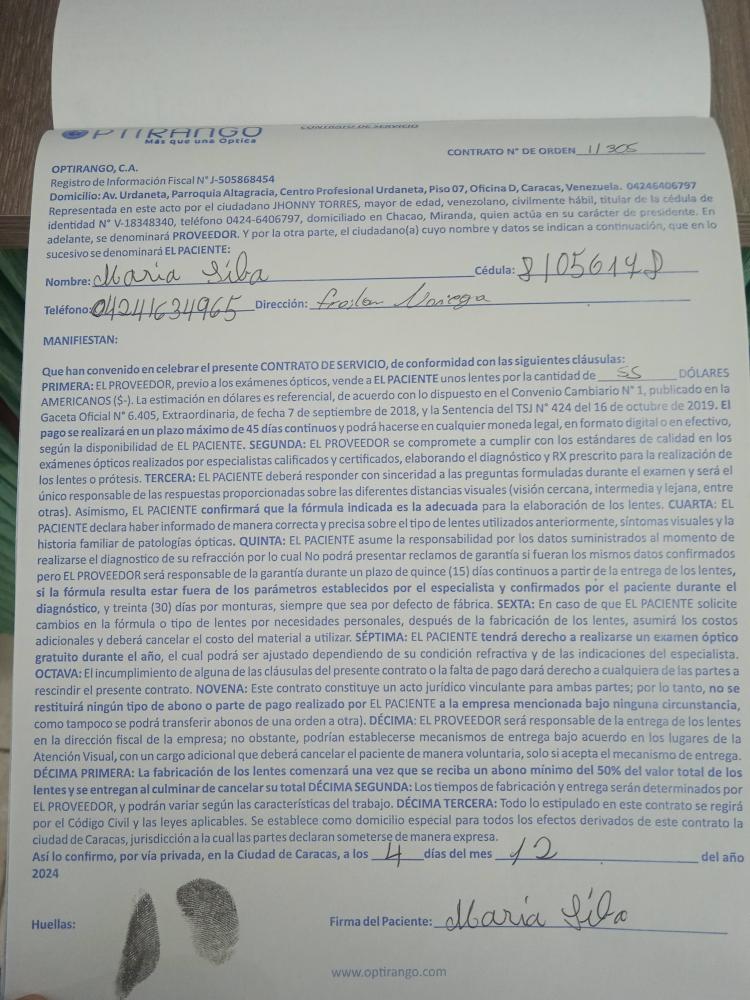 OPTIRANGO
Más que una Óptica
CONTRATO DE SERVICIO
CONTRATO N° DE ORDEN 11305
OPTIRANGO, C.A.
Registro de Información Fiscal N° J-505868454
Domicilio: Av. Urdaneta, Parroquia Altagracia, Centro Profesional Urdaneta, Piso 07, Oficina D, Caracas, Venezuela. 04246406797
Representada en este acto por el ciudadano JHONNY TORRES, mayor de edad, venezolano, civilmente hábil, titular de la cédula de
identidad N° V-18348340, teléfono 0424-6406797, domiciliado en Chacao, Miranda, quien actúa en su carácter de presidente. En
adelante, se denominará PROVEEDOR. Y por la otra parte, el ciudadano(a) cuyo nombre y datos se indican a continuación, que en lo
sucesivo se denominará EL PACIENTE:
Nombre: Maria Silba Cédula: 8105614
Teléfono: 04241634965 Dirección:
MANIFIESTAN:
Que han convenido en celebrar el presente CONTRATO DE SERVICIO, de conformidad con las siguientes cláusulas:
PRIMERA: EL PROVEEDOR, previo a los exámenes ópticos, vende a EL PACIENTE unos lentes por la cantidad de 55 DÓLARES
AMERICANOS ($-). La estimación en dólares es referencial, de acuerdo con lo dispuesto en el Convenio Cambiario N° 1, publicado en la
Gaceta Oficial N° 6.405, Extraordinaria, de fecha 7 de septiembre de 2018, y la Sentencia del TSJ N° 424 del 16 de octubre de 2019. El
pago se realizará en un plazo máximo de 45 días continuos y podrá hacerse en cualquier moneda legal, en formato digital o en efectivo,
según la disponibilidad de EL PACIENTE. SEGUNDA: EL PROVEEDOR se compromete a cumplir con los estándares de calidad en los
exámenes ópticos realizados por especialistas calificados y certificados, elaborando el diagnóstico y RX prescrito para la realización de
los lentes o prótesis. TERCERA: EL PACIENTE deberá responder con sinceridad a las preguntas formuladas durante el examen y será el
único responsable de las respuestas proporcionadas sobre las diferentes distancias visuales (visión cercana, intermedia y lejana, entre
otras). Asimismo, EL PACIENTE confirmará que la fórmula indicada es la adecuada para la elaboración de los lentes. CUARTA: EL
PACIENTE declara haber informado de manera correcta y precisa sobre el tipo de lentes utilizados anteriormente, síntomas visuales y la
historia familiar de patologías ópticas. QUINTA: EL PACIENTE asume la responsabilidad por los datos suministrados al momento de
realizarse el diagnostico de su refracción por lo cual No podrá presentar reclamos de garantía si fueran los mismos datos confirmados
pero EL PROVEEDOR será responsable de la garantía durante un plazo de quince (15) días continuos a partir de la entrega de los lentes,
si la fórmula resulta estar fuera de los parámetros establecidos por el especialista y confirmados por el paciente durante el
diagnóstico, y treinta (30) días por monturas, siempre que sea por defecto de fábrica. SEXTA: En caso de que EL PACIENTE solicite
cambios en la fórmula o tipo de lentes por necesidades personales, después de la fabricación de los lentes, asumirá los costos
adicionales y deberá cancelar el costo del material a utilizar. SÉPTIMA: EL PACIENTE tendrá derecho a realizarse un examen óptico
gratuito durante el año, el cual podrá ser ajustado dependiendo de su condición refractiva y de las indicaciones del especialista.
OCTAVA: El incumplimiento de alguna de las cláusulas del presente contrato o la falta de pago dará derecho a cualquiera de las partes a
rescindir el presente contrato. NOVENA: Este contrato constituye un acto jurídico vinculante para ambas partes; por lo tanto, no se
restituirá ningún tipo de abono o parte de pago realizado por EL PACIENTE a la empresa mencionada bajo ninguna circunstancia,
como tampoco se podrá transferir abonos de una orden a otra). DÉCIMA: EL PROVEEDOR será responsable de la entrega de los lentes
en la dirección fiscal de la empresa; no obstante, podrían establecerse mecanismos de entrega bajo acuerdo en los lugares de la
Atención Visual, con un cargo adicional que deberá cancelar el paciente de manera voluntaria, solo si acepta el mecanismo de entrega.
DÉCIMA PRIMERA: La fabricación de los lentes comenzará una vez que se reciba un abono mínimo del 50% del valor total de los
lentes y se entregan al culminar de cancelar su total DÉCIMA SEGUNDA: Los tiempos de fabricación y entrega serán determinados por
EL PROVEEDOR, y podrán variar según las características del trabajo. DÉCIMA TERCERA: Todo lo estipulado en este contrato se regirá
por el Código Civil y las leyes aplicables. Se establece como domicilio especial para todos los efectos derivados de este contrato la
ciudad de Caracas, jurisdicción a la cual las partes declaran someterse de manera expresa.
Así lo confirmo, por vía privada, en la Ciudad de Caracas, a los 4 días del mes 12 del año
2024
Huellas:
Firma del Paciente: Maria Silba
www.optirango.com